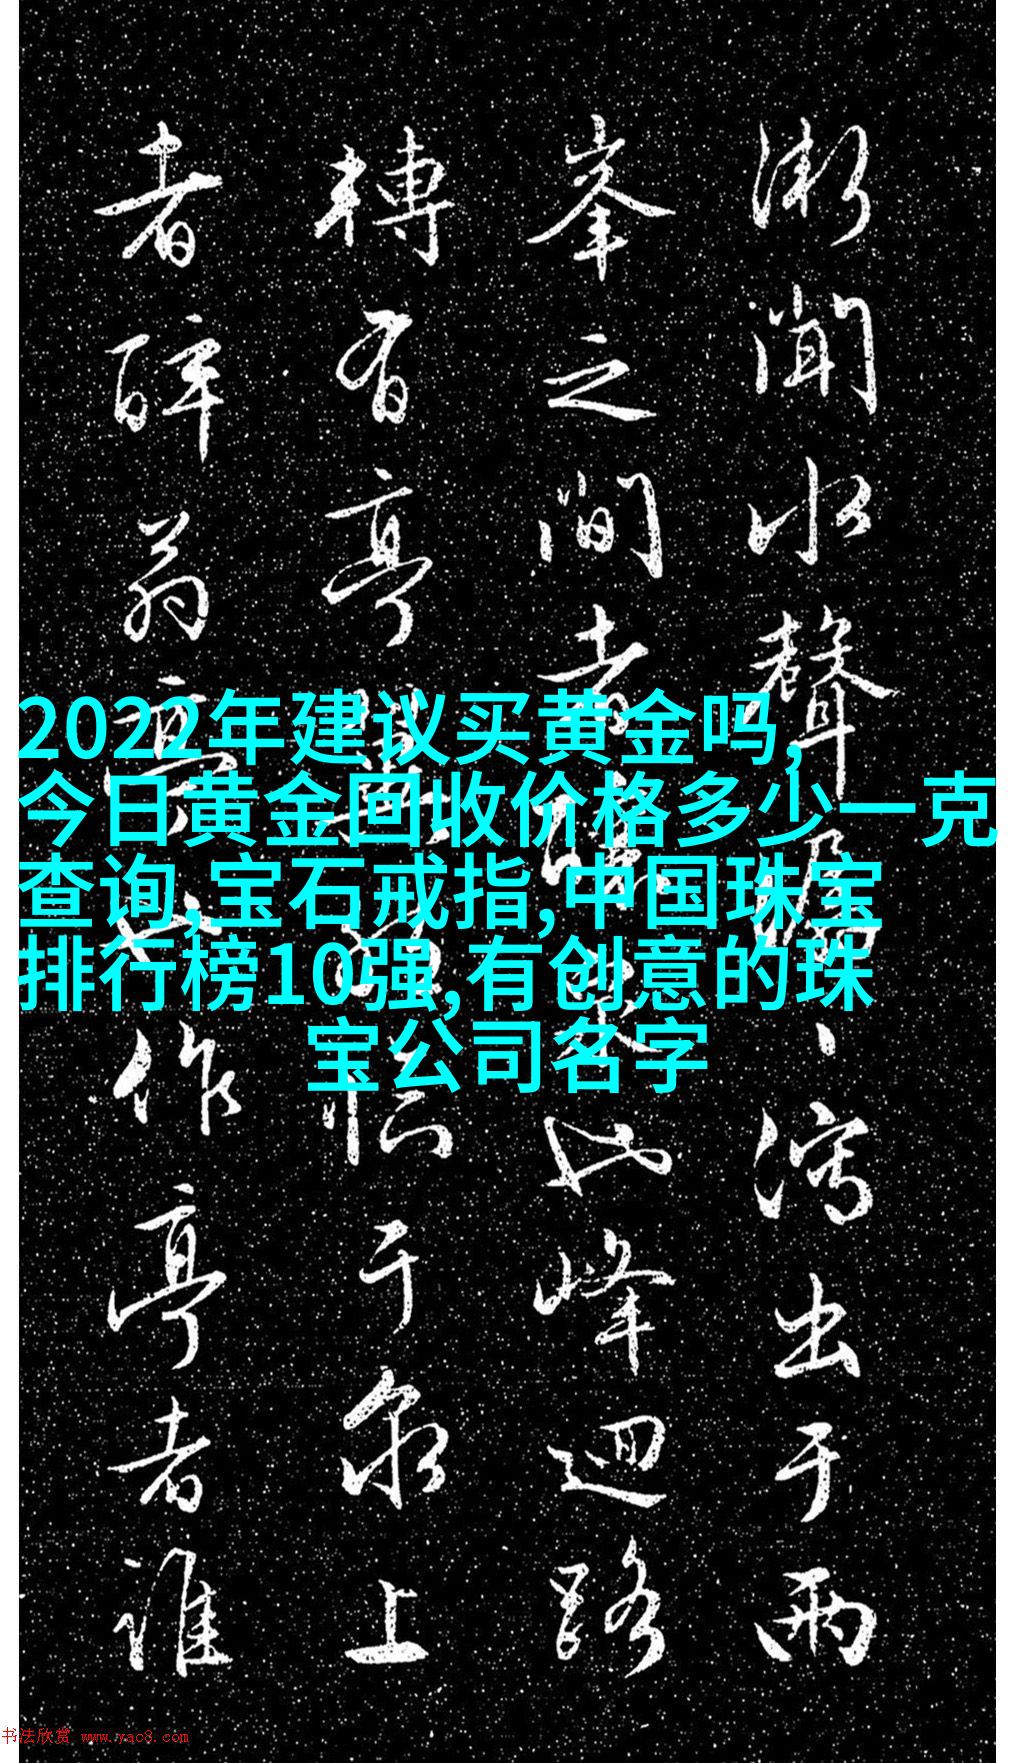 漸聞水聲瀉出于兩
峯之間者也峰迴路
轉有亭于泉上
者醉翁亭也作亭者誰
2022年建议买黄金吗,
今日黄金回收价格多少一克
查询,宝石戒指,中国珠宝
排行榜10强,有创意的珠
宝公司名字
书法欣赏 www.yac8.com